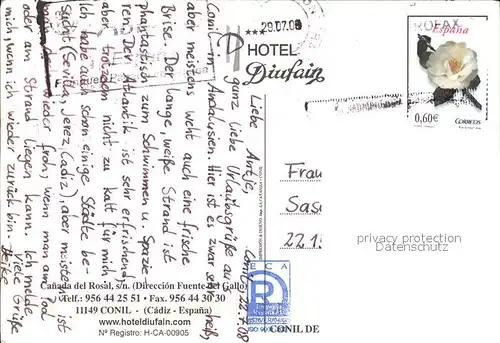 Conil, 22.7.08
Liebe Antje,
ganz liebe Urlaubsgrüße aus
Conil in Andalusien. Hier ist es zwar sehr heiß,
aber meistens weht auch eine frische
Brise. Der lange, weiße Strand ist
phantastisch zum Schwimmen u. Spazie-
ren. Der Atlantik ist sehr erfrischend,
aber trotzdem nicht zu kalt für mich.
Ich habe auch schon einige Städte be-
sucht (Sevilla, Jerez, Cadiz), aber meistens ist
man wieder froh, wenn man am Pool
oder am Strand liegen kann. Ich melde
mich wenn ich wieder zurück bin.
Viele Grüße
Heike
29.07.08
HOTEL
Diufain
Cañada del Rosal, s/n. (Dirección Fuente del Gallo)
Telf.: 956 44 25 51 • Fax. 956 44 30 30
11149 CONIL - (Cádiz - España)
www.hoteldiufain.com
Nº Registro: H-CA-00905
España
0,60€
CORREOS
Frau
Sas
22.1
privacy protection
Datenschutz
ECA
R
CONIL DE